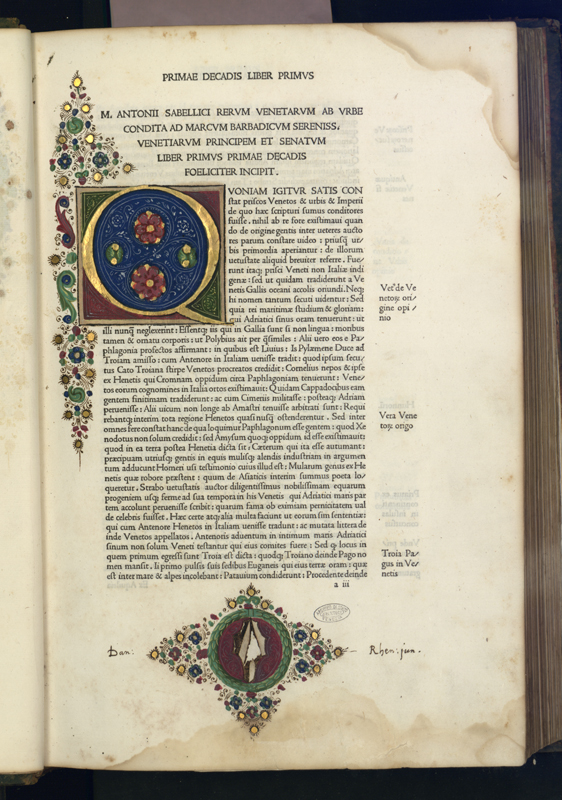 PRIMAE DECADIS LIBER PRIMVS
M. ANTONII SABELLICI RERVM VENETARVM AB VRBE
CONDITA AD MARCVM BARBADICVM SERENISS.
VENETIARVM PRINCIPEM ET SENATVM
LIBER PRIMVS PRIMAE DECADIS
FOELICITER INCIPIT.
QVONIAM IGITVR SATIS CON
stat priscos Venetos & urbis & Imperii
de quo hæc scripturi sumus conditores
fuisse. nihil ab re fore existimaui quan
do de origine gentis inter ueteres aucto
res parum constare uideo: priusq̃ ur
bis primordia aperiantur: de illorum
uetustate aliquid breuiter referre. Fue
runt itaq; prisci Veneti non Italiæ indi
genæ: sed ut quidam tradiderunt a Ve
netis Gallis oceani accolis oriundi. Neq;
hi nomen tantum secuti uidentur: Sed
quia rei maritimæ studium & gloriam:
qui Adriatici sinus oram tenuerunt: ut
illi nunq̃ neglexerint: Essentq; iis qui in Gallia sunt si non lingua: moribus
tamen & ornatu corporis: ut Polybius ait per q̃similes: Alii uero eos e Pa/
phlagonia profectos affirmant: in quibus est Liuius: Is Pylæmene Duce ad
Troiam amisso: cum Antenore in Italiam uenisse tradit: quod ipsum secu/
tus Cato Troiana stirpe Venetos procreatos credidit: Cornelius nepos & ipse
ex Henetis qui Cromnam oppidum circa Paphlagoniam tenuerunt: Vene/
tos eorum cognomines in Italia ortos existimauit: Quidam Cappadocibus eam
gentem finitimam tradiderunt: ac cum Cimeriis militasse: posteaq; Adriam
peruenisse: Alii uicum non longe ab Amastri tenuisse arbitrati sunt: Requi
rebantq; interim tota regione Henetos quasi nusq̃ ostenderentur. Sed inter
omnes fere constat hanc de qua loquimur Paphlagonum esse gentem: quod Xe
nodotus non solum credidit: sed Amysum quoq; oppidum id esse existimauit:
quod in ea terra postea Henetia dicta sit: Cæterum qui ita esse autumant:
præcipuam utriusq; gentis in equis mulisq; alendis industriam in argumen
tum adducunt Homeri usi testimonio cuius illud est: Mularum genus ex He
netis quæ robore præstent: quum de Asiaticis interim summus poeta lo/
queretur. Strabo uetustatis auctor diligentissimus nobilissimam equarum
progeniem usq; ferme ad sua tempora in his Venetis qui Adriatici maris par
tem accolunt peruenisse scribit: quarum fama ob eximiam pernicitatem ual
de celebris fuisset. Hæc certe atq; alia multa faciunt ut eorum sim sententiæ:
qui cum Antenore Henetos in Italiam uenisse tradunt: ac mutata littera de
inde Venetos appellatos. Antenoris aduentum in intimum maris Adriatici
sinum non solum Veneti testantur qui eius comites fuere: Sed q̃ locus in
quem primum egressi sunt Troia est dicta: quodq; Troiano deinde Pago no
men mansit. Ii primo pulsis suis sedibus Euganeis qui eius terræ oram: quæ
est inter mare & alpes incolebant: Patauium condiderunt: Procedente deinde
a iii
Vet'de Ve
netoɽ ori/
gine opi/
nio
Vera Vene
toɽ origo
Troia Pa/
gus in Ve/
netis
Dan:
Rhen: jun.